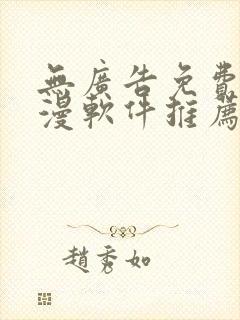 無廣告免費
漫軟件推薦
趙秀如